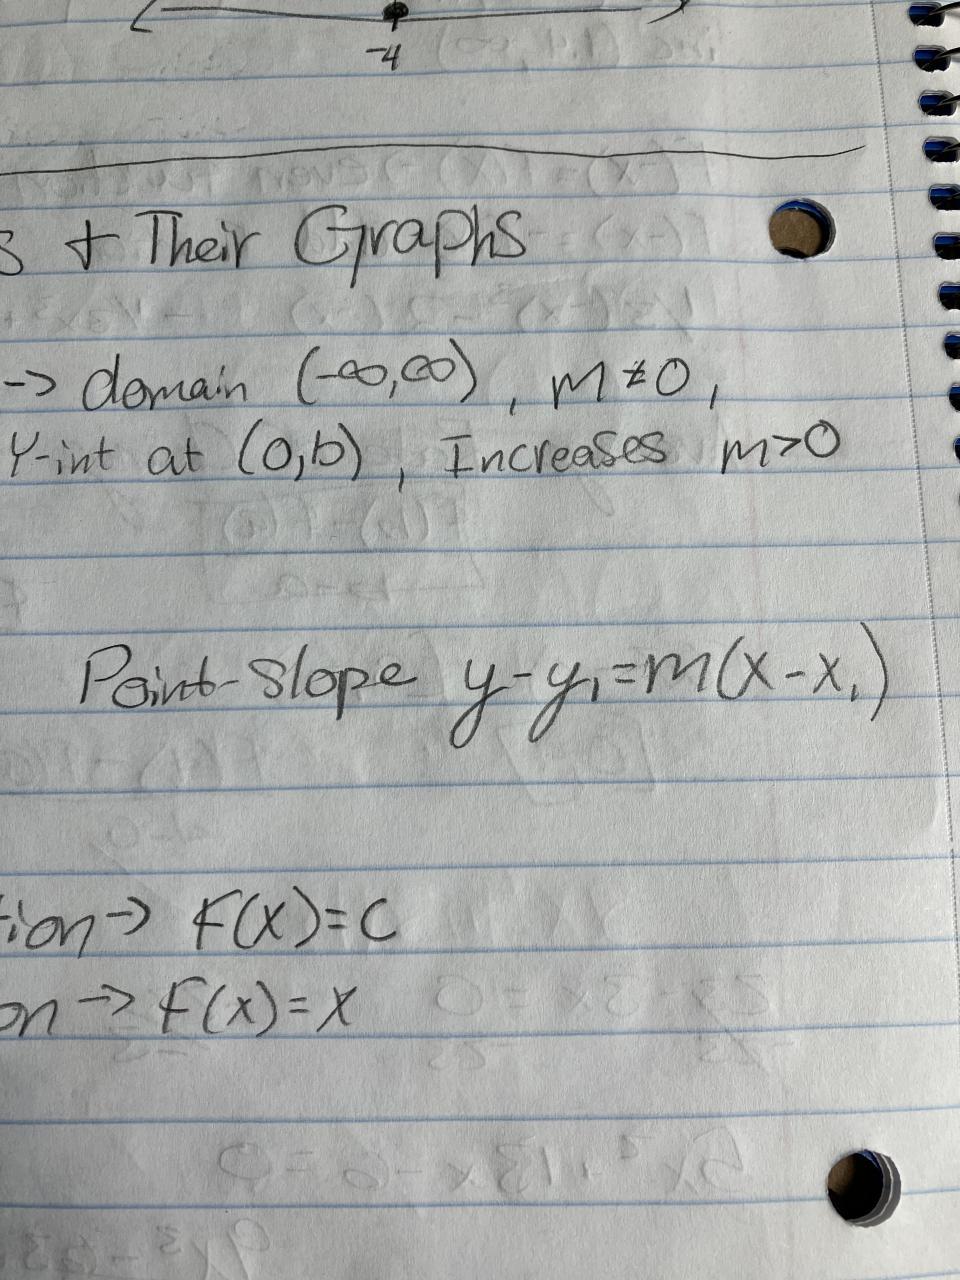 -4
s + Their Graphs
-> domain (-∞,∞), m≠0,
Y-int at (0,b), Increases m>0
Point-Slope y-y₁=m(x-x₁)
tion-> F(x)=C
on-> F(x)=x